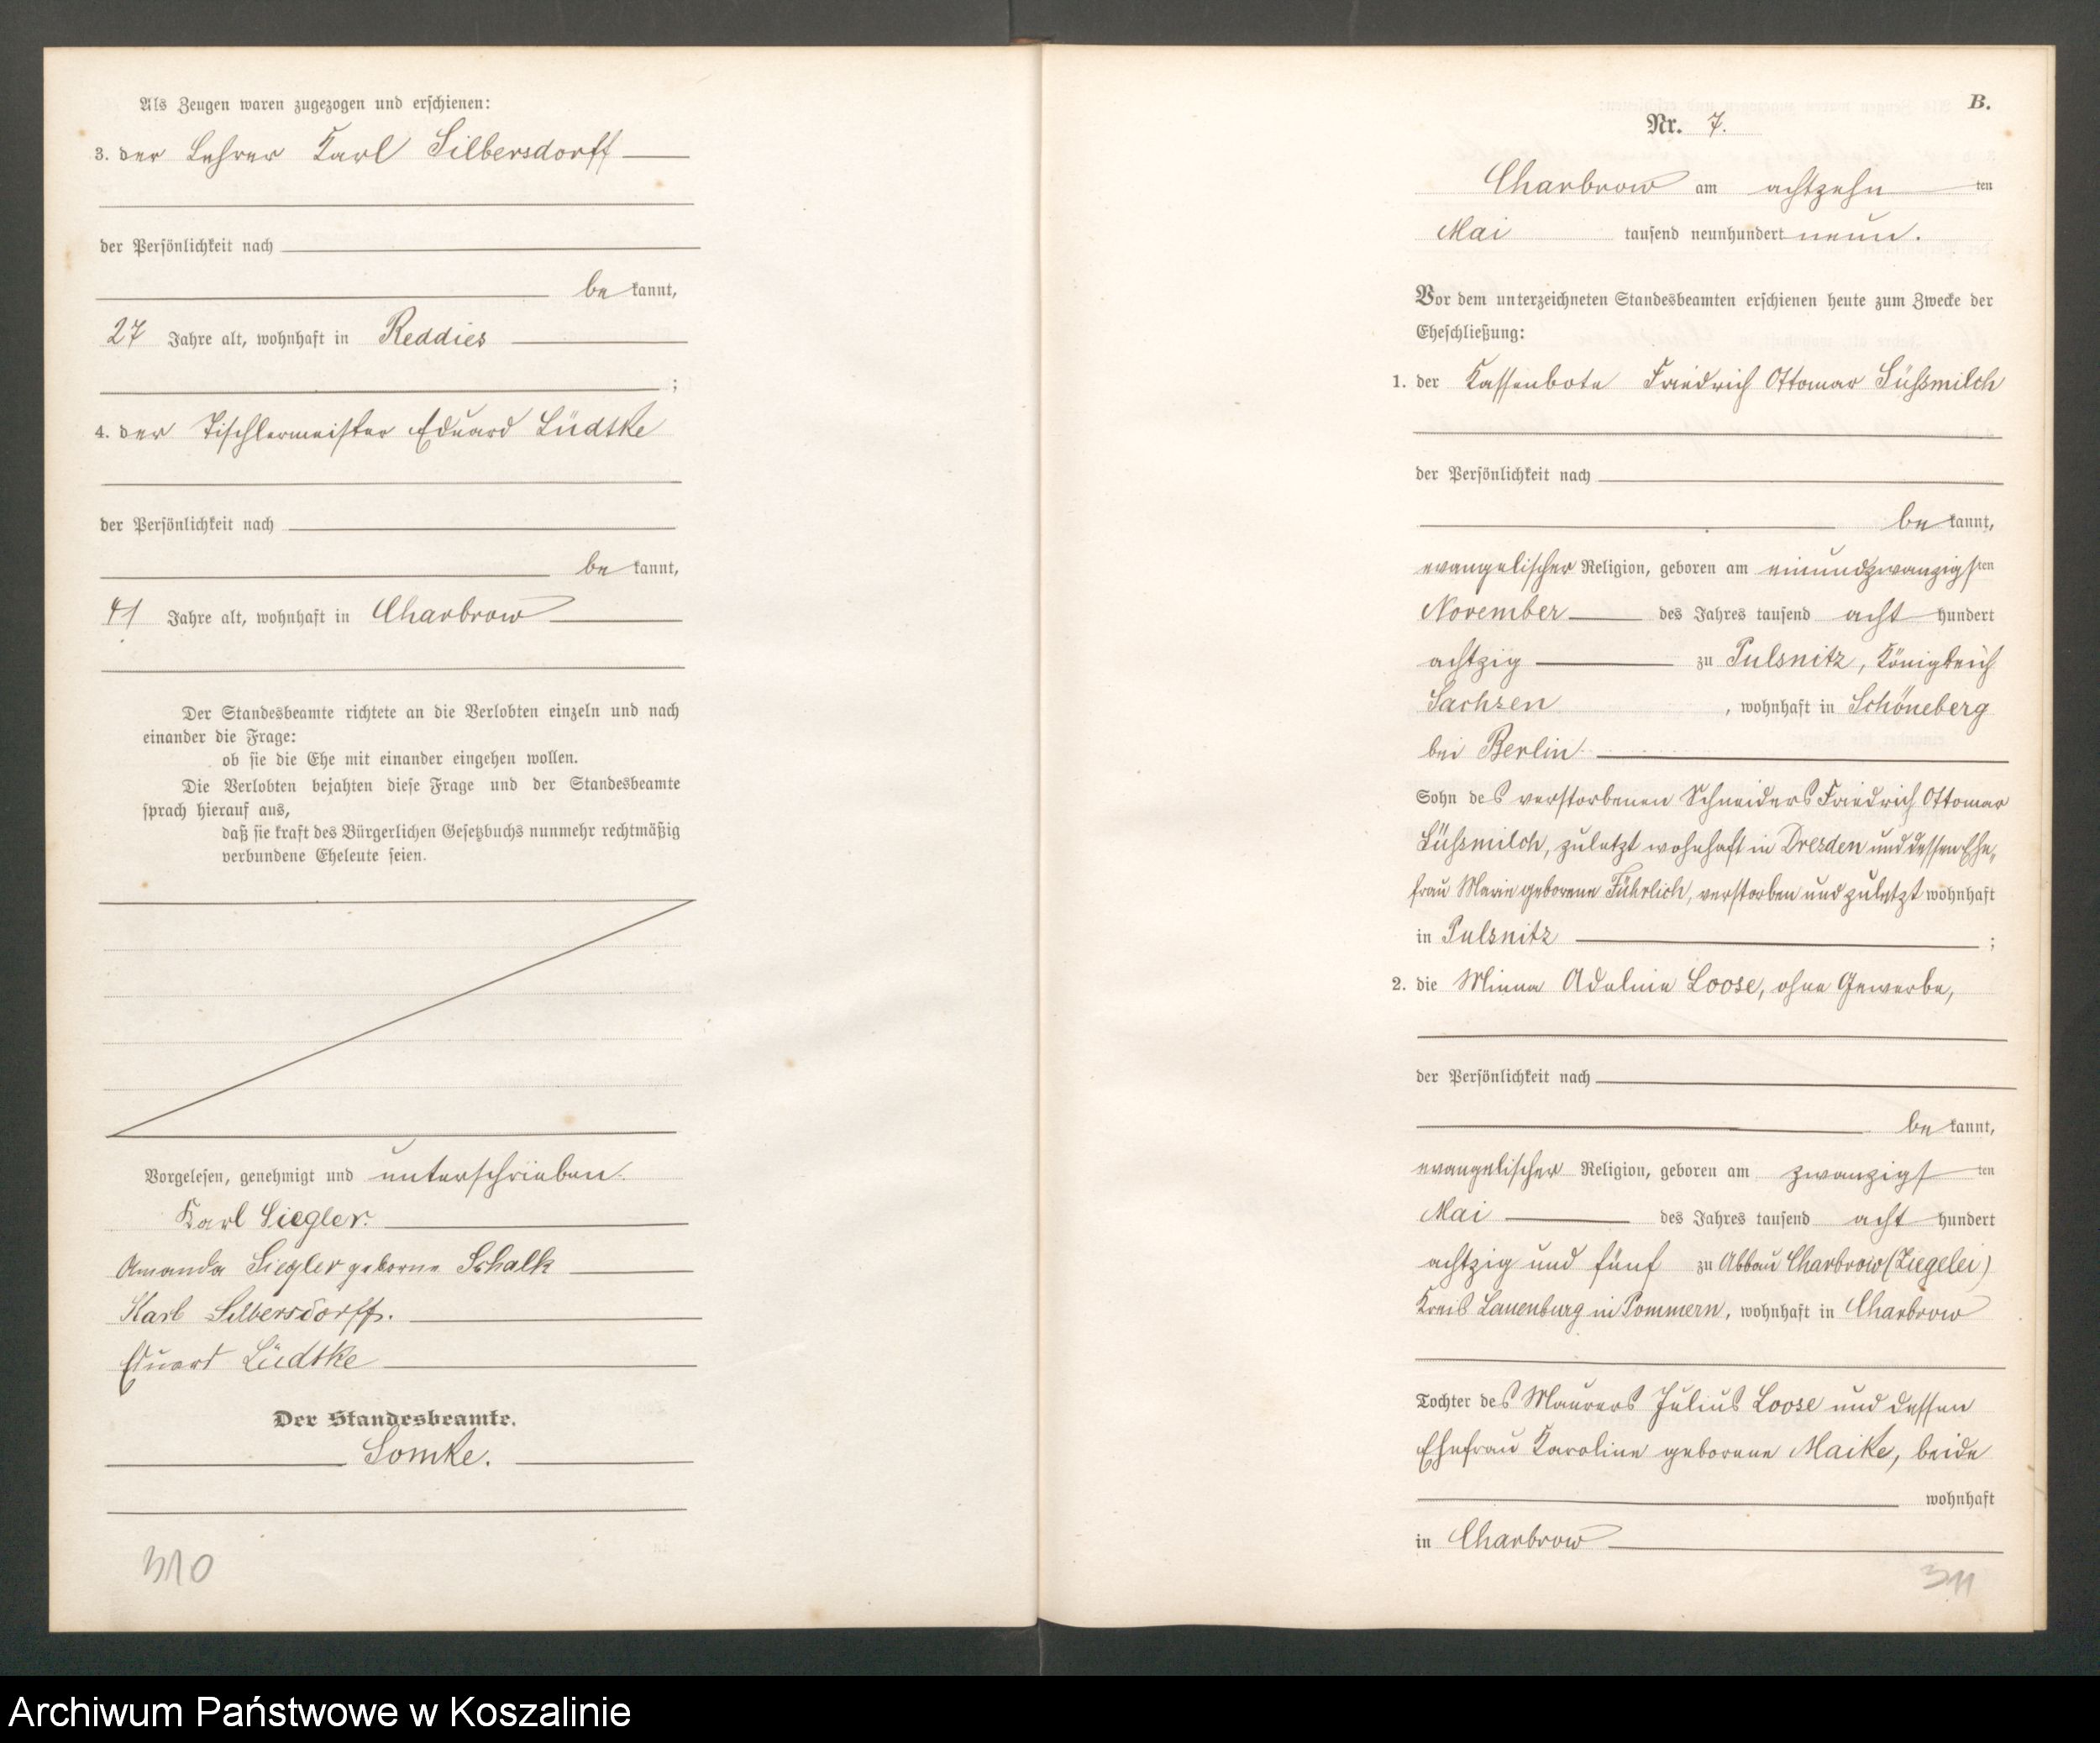 Als Zeugen waren zugezogen und erschienen:
3. der Lehrer Karl Silbersdorff
der Persönlichkeit nach
be kannt,
27 Jahre alt, wohnhaft in Reddies
;
4. der Tischlermeister Eduard Lüdtke
der Persönlichkeit nach
be kannt,
41 Jahre alt, wohnhaft in Charbrow
Der Standesbeamte richtete an die Verlobten einzeln und nach
einander die Frage:
ob sie die Ehe mit einander eingehen wollen.
Die Verlobten bejahten diese Frage und der Standesbeamte
sprach hierauf aus,
daß sie kraft des Bürgerlichen Gesetzbuchs nunmehr rechtmäßig
verbundene Eheleute seien.
Vorgelesen, genehmigt und unterschrieben.
Karl Siegler.
Amanda Siegler geborne Schalk
Karl Silbersdorff.
Eduard Lüdtke
Der Standesbeamte.
Somke.
310
B.
Nr. 7.
Charbrow am achtzehn ten
Mai tausend neunhundert neun.
Vor dem unterzeichneten Standesbeamten erschienen heute zum Zwecke der
Eheschließung:
1. der Kassenbote Friedrich Ottomar Süßmilch
der Persönlichkeit nach
be kannt,
evangelischer Religion, geboren am einundzwanzigsten
November des Jahres tausend acht hundert
achtzig zu Pulsnitz, Königreich
Sachsen, wohnhaft in Schöneberg
bei Berlin
Sohn des verstorbenen Schneiders Friedrich Ottomar
Süßmilch, zuletzt wohnhaft in Dresden und dessen Ehe-
frau Marie geborene Führlich, verstorben und zuletzt wohnhaft
in Pulsnitz ;
2. die Minna Adeline Loose, ohne Gewerbe,
der Persönlichkeit nach
be kannt,
evangelischer Religion, geboren am zwanzigsten
Mai des Jahres tausend acht hundert
achtzig und fünf zu Abbau Charbrow (Ziegelei)
Kreis Lauenburg in Pommern, wohnhaft in Charbrow
Tochter des Maurers Julius Loose und dessen
Ehefrau Karoline geborene Maike, beide
wohnhaft
in Charbrow
311
Archiwum Państwowe w Koszalinie